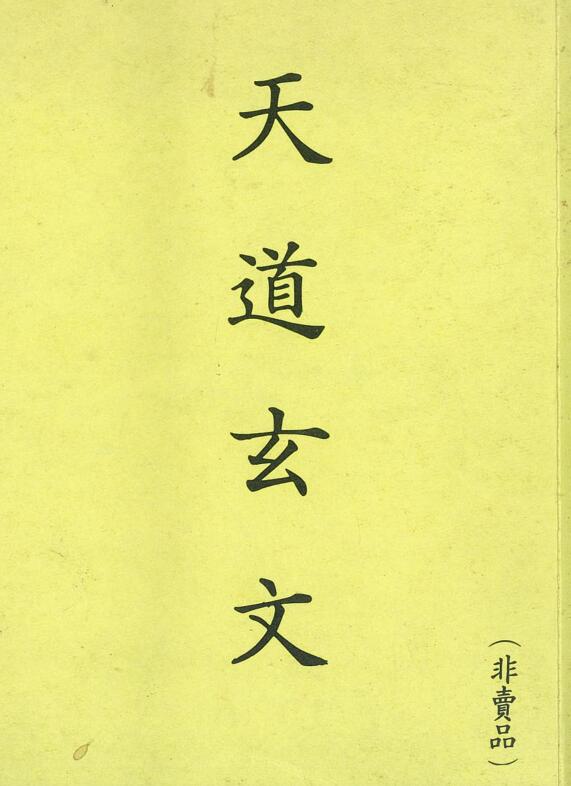 天道玄文
（非賣品）